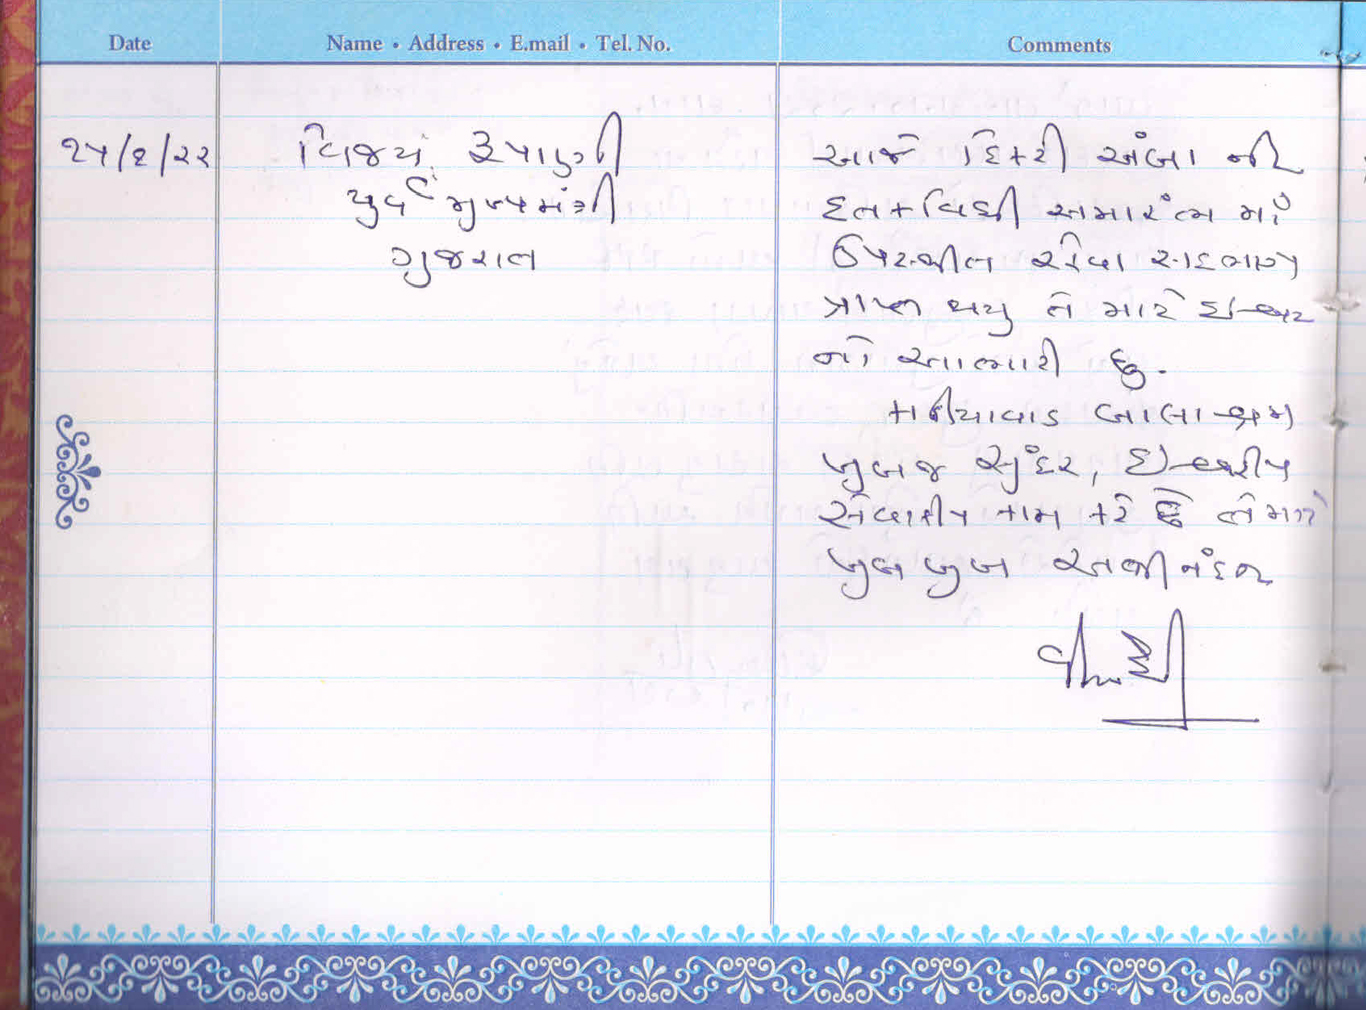 Date
Name • Address • E.mail • Tel. No.
Comments
૨૫/૨/૨૨
વિજય રૂપાણી
પુર્વ મુખ્યમંત્રી
ગુજરાત
આજે દિકરી અંબા ની
દતક વિધી સમારંભ માં
ઉપસ્થીત રહેવા સદભાગ્ય
પ્રાપ્ત થયુ તે માટે ઇશ્વર
નો આભારી છુ.
કાઠીયાવાડ બાલાશ્રમ
ખુબજ સુંદર, ઇશ્વરીય
સેવાકીય કામ કરે છે તેમને
ખુબ ખુબ અભીનંદન